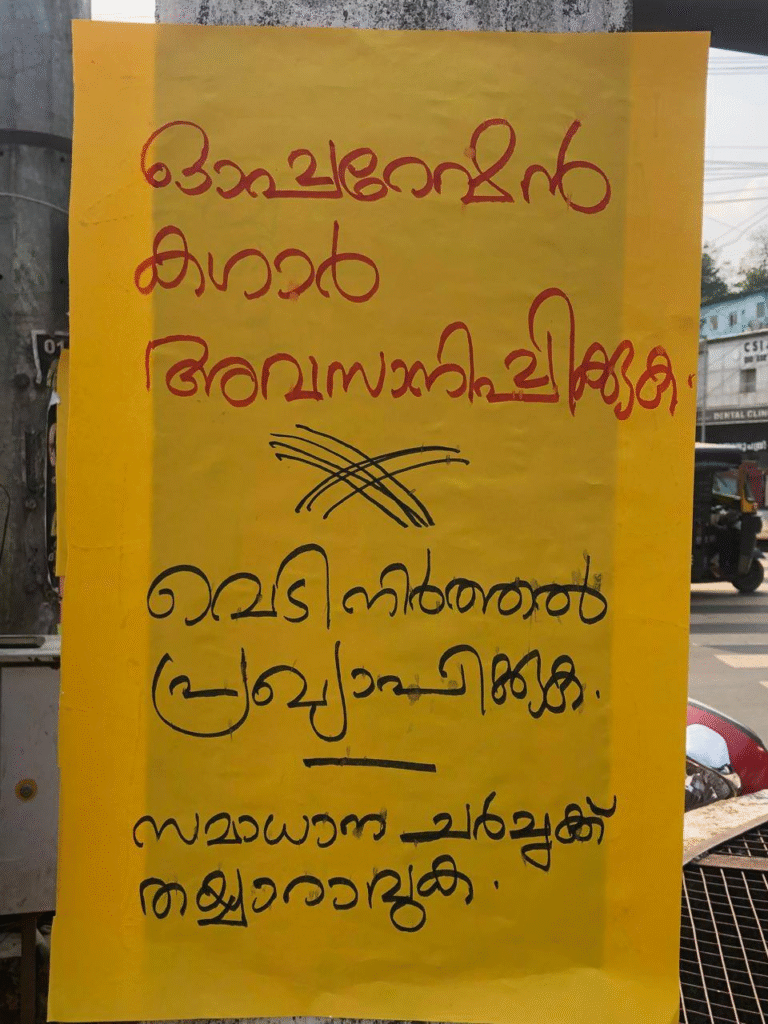 ഓപ്പറേഷൻ
കഗാർ
അവസാനിപ്പിക്കുക.
വെടിനിർത്തൽ
പ്രഖ്യാപിക്കുക.
സമാധാന ചർച്ചക്ക്
തയ്യാറാവുക.
01
CSI
DENTAL CLIN